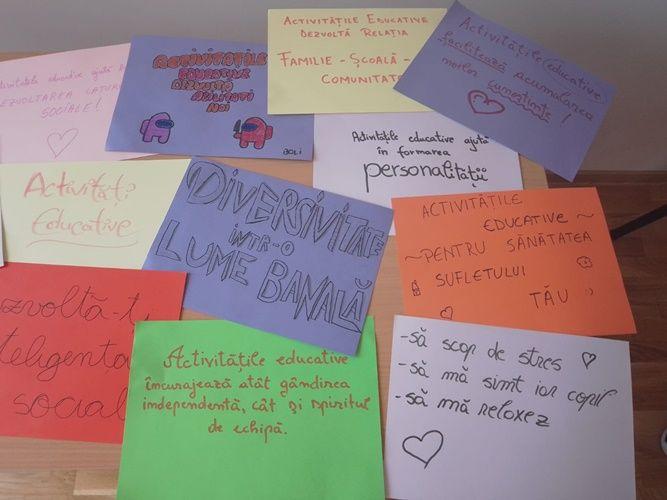 educative ajută
DEZVOLTAREA LATURII
SOCIALE!
ACTIVITĂȚILE
EDUCATIVE
DEZVOLTĂ
ABILITĂȚI
NOI
JOLI
ACTIVITĂȚILE EDUCATIVE
DEZVOLTĂ RELAȚIA
FAMILIE - ȘCOALĂ -
COMUNITATE
Activitățile educative
facilitează acumularea
noilor cunoștințe!
Activitățile educative ajută
în formarea
personalității
Activități
Educative
DIVERSIVITATE
ÎNTR-O
LUME BANALĂ
ACTIVITĂȚILE
EDUCATIVE ~
~ PENTRU SĂNĂTATEA
SUFLETULUI
TĂU :)
Dezvoltă-ți
inteligența
socială
Activitățile educative
încurajează atât gândirea
independentă, cât și spiritul
de echipă.
-să scap de stres
-să mă simt iar copil
-să mă relaxez